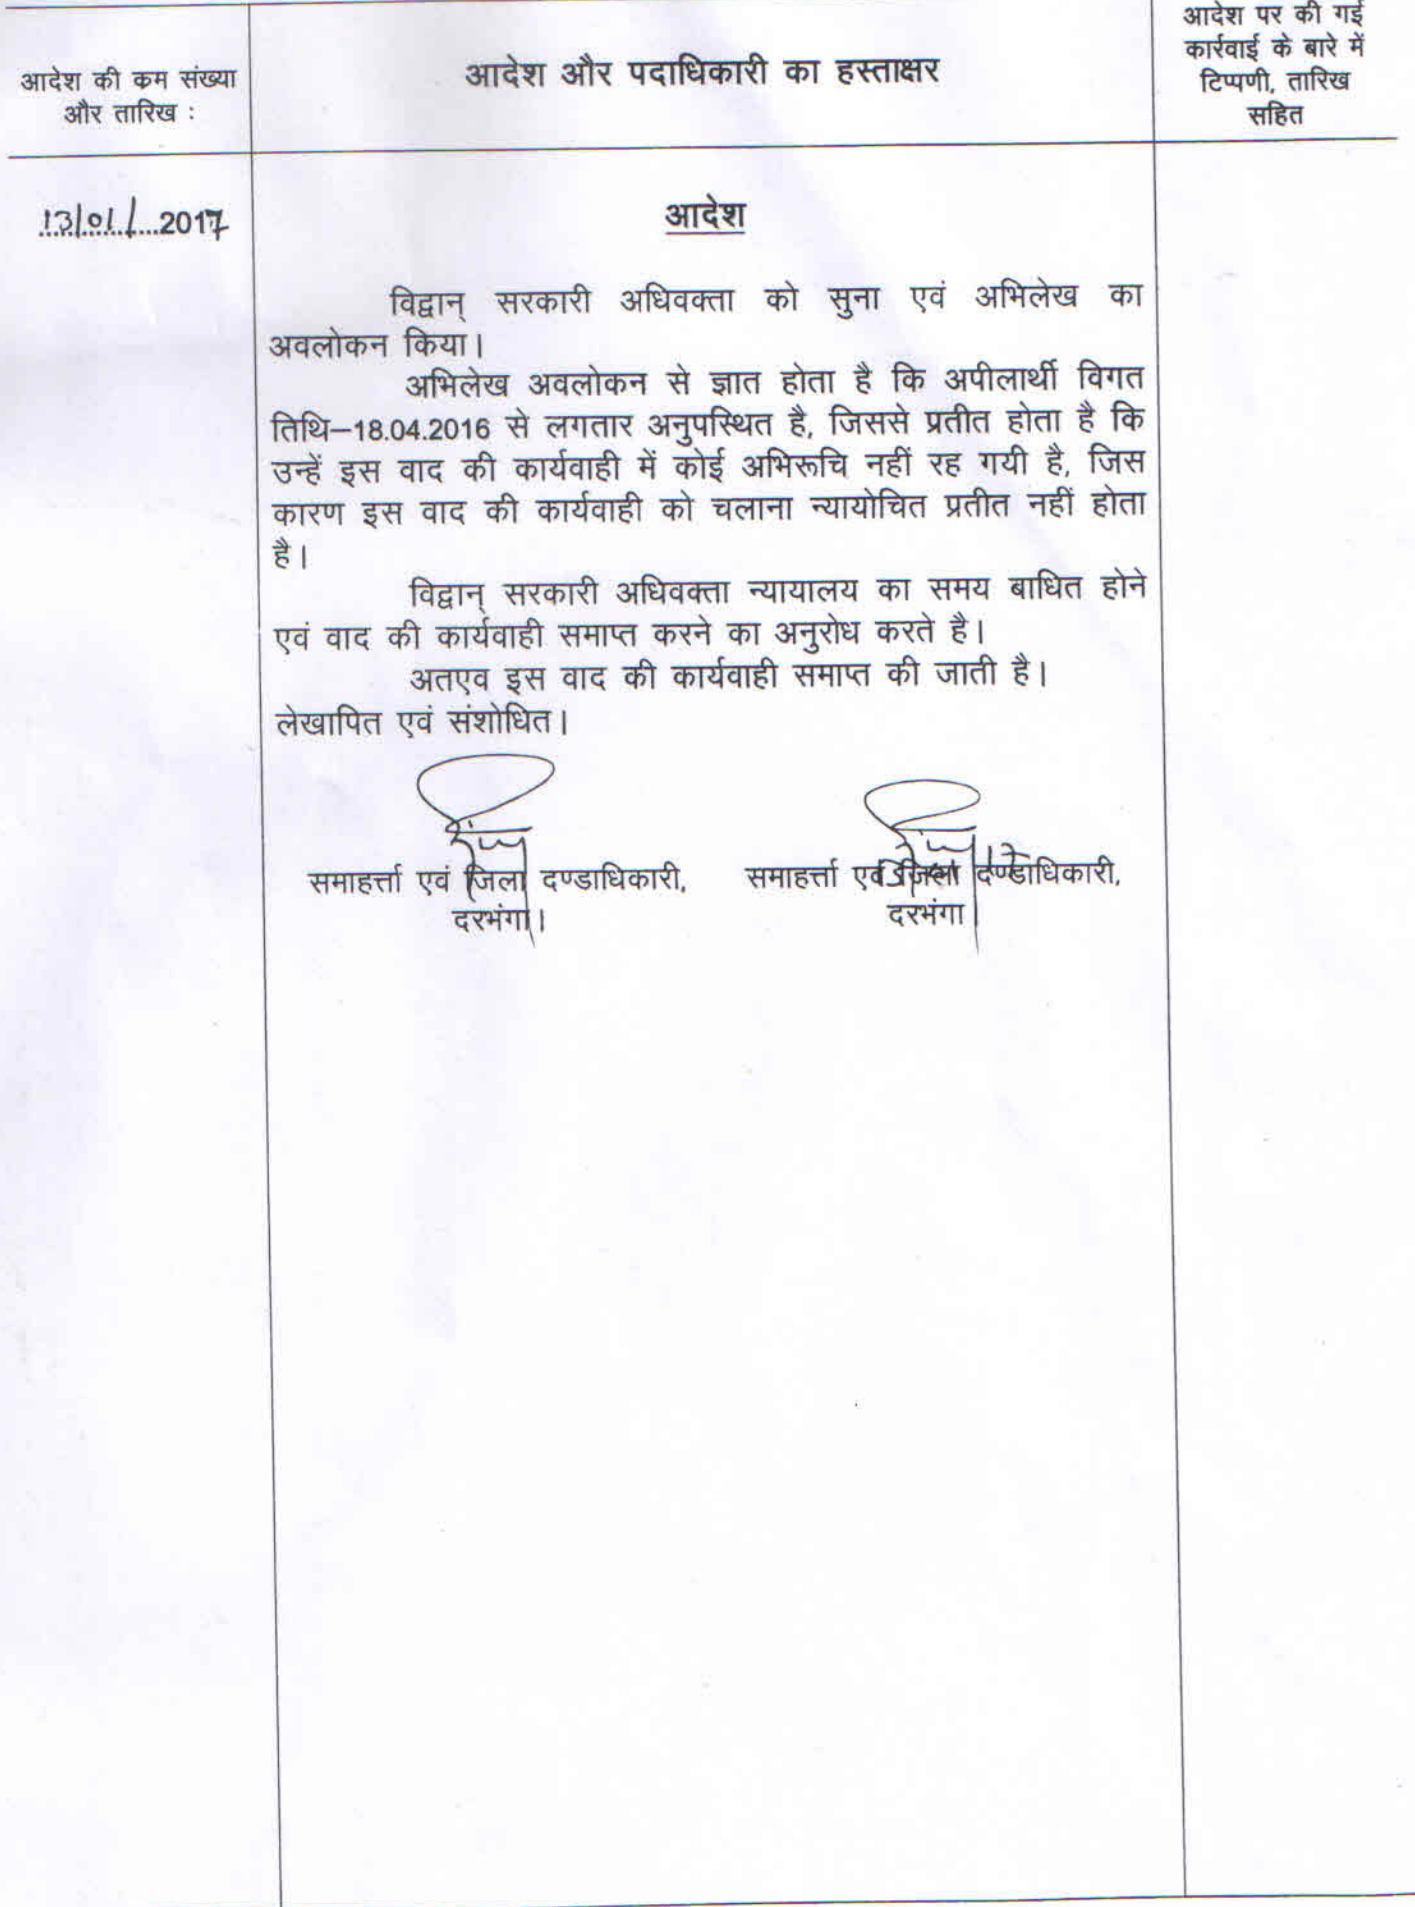 आदेश की कम संख्या
और तारिख :
आदेश और पदाधिकारी का हस्ताक्षर
आदेश पर की गई
कार्रवाई के बारे में
टिप्पणी, तारिख
सहित
13/01/2017
आदेश
विद्वान् सरकारी अधिवक्ता को सुना एवं अभिलेख का
अवलोकन किया।
अभिलेख अवलोकन से ज्ञात होता है कि अपीलार्थी विगत
तिथि–18.04.2016 से लगतार अनुपस्थित है, जिससे प्रतीत होता है कि
उन्हें इस वाद की कार्यवाही में कोई अभिरूचि नहीं रह गयी है, जिस
कारण इस वाद की कार्यवाही को चलाना न्यायोचित प्रतीत नहीं होता
है।
विद्वान् सरकारी अधिवक्ता न्यायालय का समय बाधित होने
एवं वाद की कार्यवाही समाप्त करने का अनुरोध करते है।
अतएव इस वाद की कार्यवाही समाप्त की जाती है।
लेखापित एवं संशोधित।
समाहर्त्ता एवं जिला दण्डाधिकारी,
दरभंगा।
समाहर्त्ता एवं जिला दण्डाधिकारी,
दरभंगा